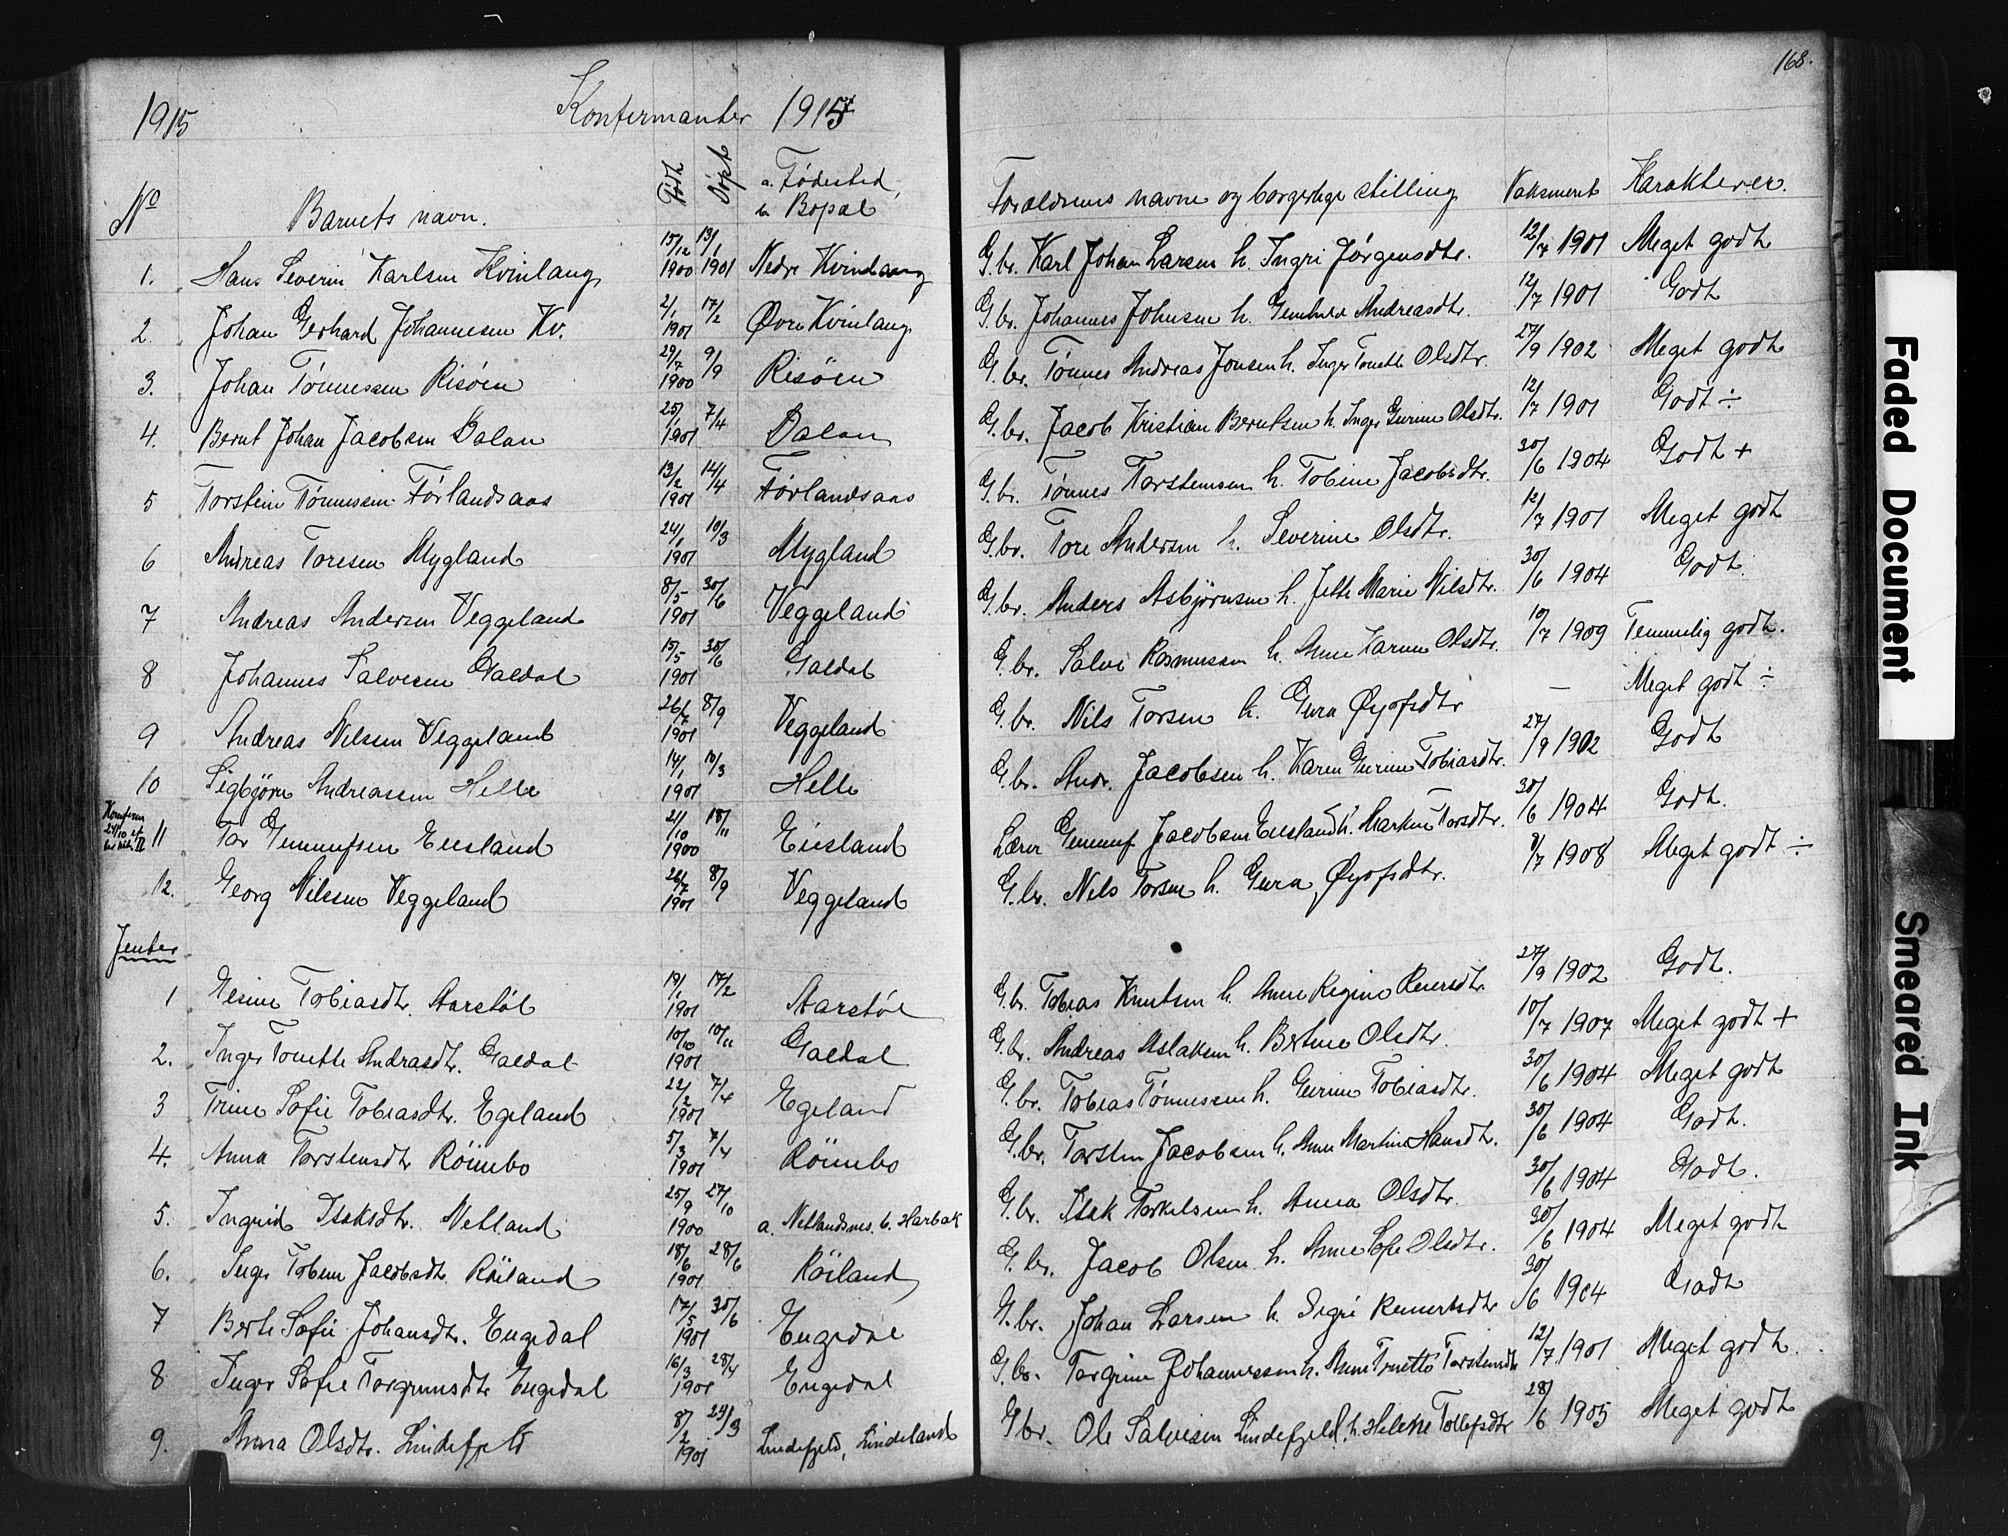 168.
1915 Konfirmanter 1915
No Barnets navn. Født Døpt a. Fødested, b. Bopæl Foraldrenes navne og borgerlige stilling Vaksineret Karakterer.
1. Hans Severin Karlsen Kvinlaug 15/12 1900 13/1 1901 Nedre Kvinlaug G.br. Karl Johan Larsen h. Ingri Jørgensdtr. 12/7 1901 Meget godt
2. Johan Gerhard Johannesen Kv. 2/1 1901 17/2 Øvre Kvinlaug G.br. Johannes Johnsen h. Gunhild Andreasdtr. 12/7 1901 Godt
3. Johan Tønnessen Risøen 29/7 1900 9/9 Risøen G.br. Tønnes Andreas Jonsen h. Inger Tonette Olsdtr. 27/9 1902 Meget godt
4. Bernt Johan Jacobsen Dalan 25/1 1901 7/4 Dalan G.br. Jacob Kristian Berntsen h. Inger Gurine Olsdtr. 12/7 1901 Godt ÷
5 Torstein Tønnessen Førlandsaas 13/2 1901 14/4 Førlandsaas G.br. Tønnes Torstensen h. Tobine Jacobsdtr. 30/6 1904 Godt +
6 Andreas Toresen Mygland 24/1 1901 10/3 Mygland G.br. Tore Andersen h. Severine Olsdtr. 12/7 1901 Meget godt
7 Andreas Andersen Veggeland 8/5 1901 30/6 Veggeland G.br. Anders Asbjørnsen h. Jette Marie Nilsdtr. 30/6 1904 Godt.
8 Johannes Salvesen Galdal 15/5 1901 30/6 Galdal G.br. Salve Rasmussen h. Anne Karine Olsdtr. 10/7 1909 Temmelig godt.
9 Andreas Nilssen Veggeland 26/7 1901 8/9 Veggeland G.br. Nils Torsen h. Gura Øyofsdtr — Meget godt ÷
10 Sigbjørn Andreassen Helle 14/1 1901 10/3 Helle G.br. Andr. Jacobsen h. Karen Gurine Tobiasdtr. 27/9 1902 Godt
11 Tor Gunnufsen Eiesland 21/10 1900 18/11 Eiesland Lærer Gunnuf Jacobsen Eiesland h. Martine Torsdtr. 30/6 1904 Godt.
12. Georg Nilssen Veggeland 26/7 1901 8/9 Veggeland G.br. Nils Torsen h. Gura Øyofsdtr. 8/7 1908 Meget godt ÷
Jenter
1 Elsine Tobiasdtr. Aarstøl 19/1 1901 17/2 Aarstøl G.br. Tobias Knutsen h. Anne Regine Reiersdtr. 27/9 1902 Godt.
2. Inger Tonette Andreasdtr. Galdal 10/10 1901 10/11 Galdal G.br. Andreas Aslaksen h. Bertine Olsdtr. 10/7 1907 Meget godt +
3 Trine Sofie Tobiasdtr. Egeland 22/2 1901 7/4 Egeland G.br. Tobias Tønnessen h. Gurine Tobiasdtr. 30/6 1904 Meget godt
4. Anna Torstensdtr Röinebo 5/3 1901 7/4 Röinebo G.br. Torsten Jacobsen h. Anne Martine Hansdtr. 30/6 1904 Godt.
5. Ingrid Isaksdtr. Netland 25/9 1900 27/10 a. Netlandsnes. b. Harbak G.br. Isak Torkelsen h. Anna Olsdtr. 30/6 1904 Godt.
6. Inger Tobine Jacobsdtr. Röiland 18/6 1901 28/6 Röiland G.br. Jacob Olsen h. Anne Sofie Olsdtr. 30/6 1904 Meget godt
7 Berte Sofie Johansdtr. Engedal 17/5 1901 30/6 Engedal G.br. Johan Larsen h. Siri Reinertsdtr 30/6 1904 Godt
8 Inger Sofie Torgrimsdtr Engedal 16/3 1901 28/4 Engedal G.br. Torgrim Johannessen h. Anne Tonette Torstensdtr 12/7 1901 Meget godt.
9. Anna Olsdtr. Lindefjeld 8/2 1901 24/3 Lindefjeld, Lindeland G.br. Ole Salvesen Lindefjeld. h. Helene Tollefsdtr 28/6 1905 Meget godt
Faded Document
Smeared Ink